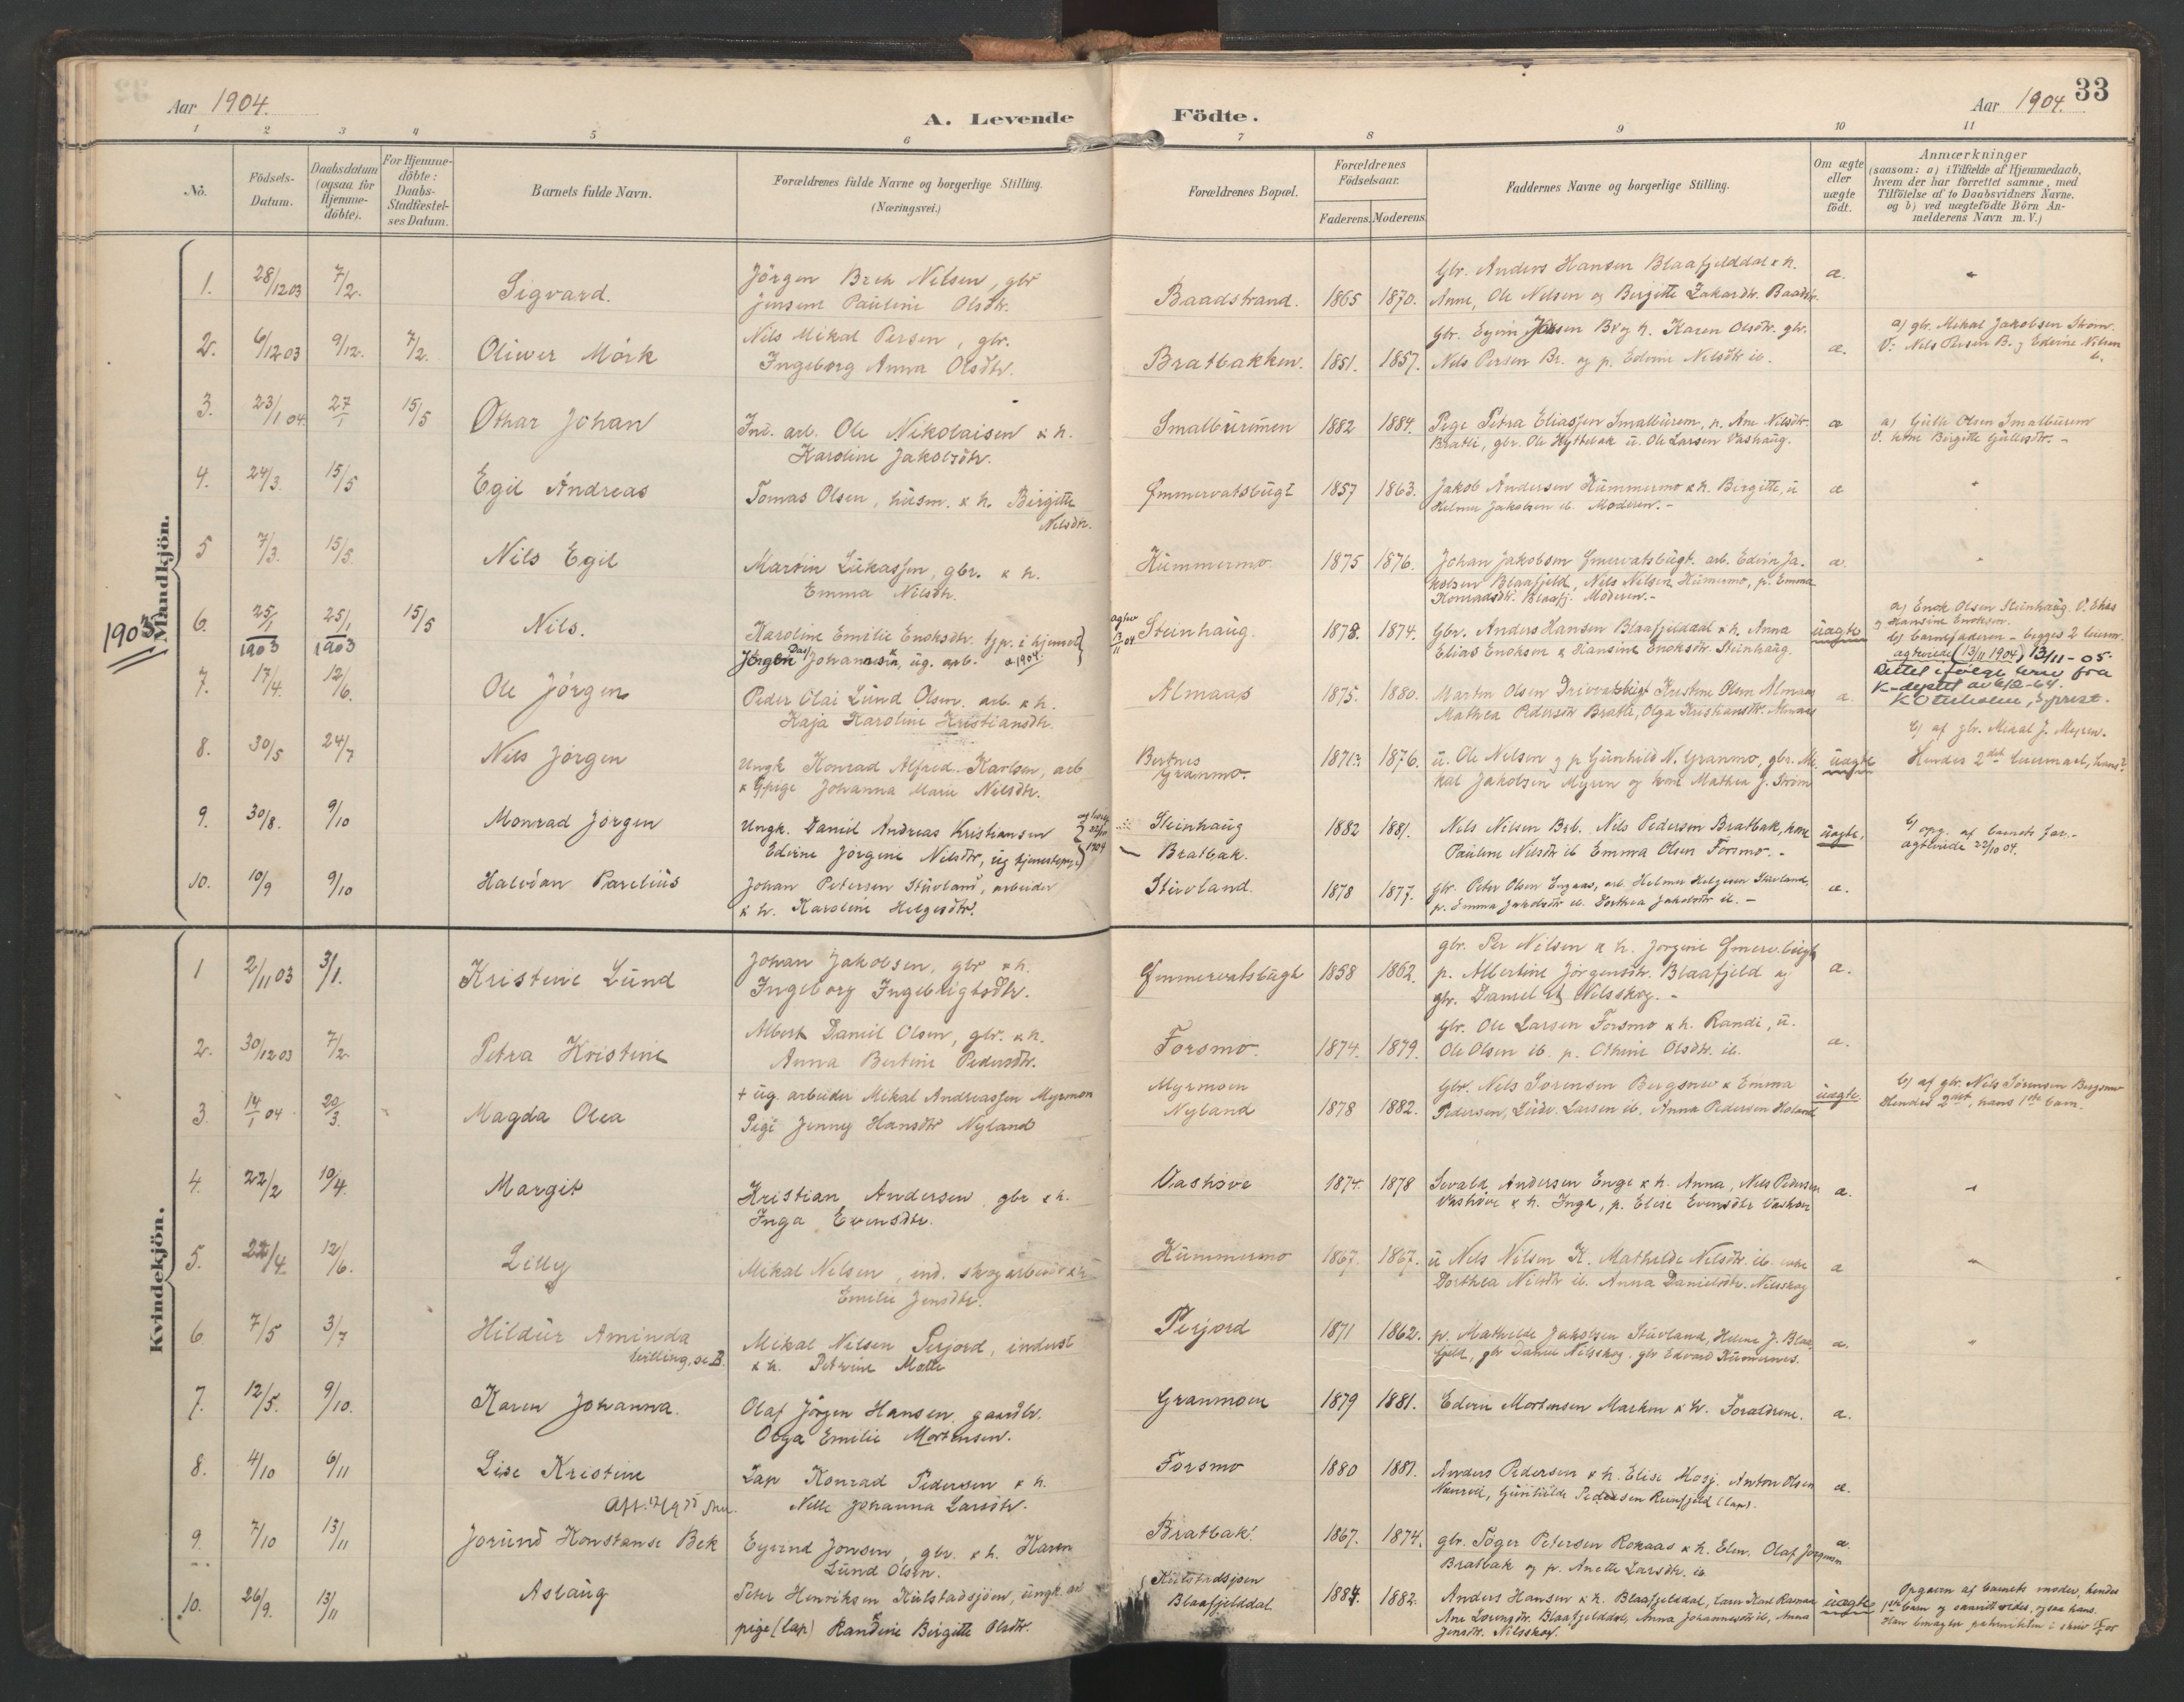 Aar 1904.
A. Levende
Födte.
Aar 1904. 33
1 2 3 4 5 6 7 8 9 10 11
No.
Födsels-
Datum.
Daabsdatum
(ogsaa for
Hjemme-
döbte).
For Hjemme-
döbte:
Daabs-
Stadfæstel-
ses Datum.
Barnets fulde Navn.
Forældrenes fulde Navne og borgerlige Stilling.
(Næringsvei.)
Forældrenes Bopæl.
Forældrenes
Födselsaar.
Faderens. Moderens.
Faddernes Navne og borgerlige Stilling.
Om ægte
eller
uægte
födt.
Anmærkninger
(saasom: a) i Tilfælde af Hjemmedaab,
hvem der har forrettet samme, med
Tilföielse af to Daabsvidners Navne.
og b) ved uægtefödte Börn An-
melderens Navn m. V.)
Mandkjön.
1. 28/12 03 7/2. Sigvard.
Jörgen Brek Nilsen, gbr
Jensine Pauline Olsdtr.
Baadstrand. 1865 1870.
Gbr. Anders Hansen Blaafjelddal & h.
Anne, Ole Nelsen og Bergitte Zakardtr. Baadstr. a.
2. 6/12 03 9/12. 7/2. Oliver Mörk
Nils Mikal Persen, gbr.
Ingeborg Anna Olsdtr.
Bratbakken. 1851. 1857.
Gbr. Eyvin Jonsen Br og h. Karen Olsdtr. gbr.
Nils Persen Br. og p. Edvine Nilsdtr ib. a.
a) gbr. Mikal Jakobsen Ström.
V: Nils Persen B. og Edvine Nilsen
ib.
3. 23/1 04. 27/1 15/5 Othar Johan
Ind. arb. Ole Nikolaisen & h.
Karoline Jakobsdtr.
Smalbürmen 1882 1884.
Pige Petra Eliassen Smalbürem, p. Ane Nilsdtr.
Bratli, gbr. Ole Hyttebak ü. Ole Larsen Vashaüg. a
a) Gülle Olsen Smalbürem
V. kone Birgitte Güllesdtr. -
4. 24/3. 15/5 Egil Andreas
Tomas Olsen, hüsm. & h. Birgitte
Nilsdtr.
Ommervatsbügt 1857 1863.
Jakob Andersen Kümmermo & h. Birgitte, ü
Helmer Jakobsen ib. Moderen. - a
5 7/3. 15/5. Nils Egil
Martin Lükassen, gbr. & h.
Emma Nilsdtr.
Kümmermo 1875 1876.
Johan Jakobsen Omervatsbügt. arb. Edvin Ja-
kobsen Blaafjeld, Nils Nilsen Kümermo, p. Emma
Konradsdtr. Blaafj. Moderen. - a.
1903
6. 25/1 1903 25/1 1903 15/5 Nils.
Karoline Emilie Enoksdtr. tj.p. i hjemmet
Jörgen Dav. Johannsen, üg. arb. a 1904.
agtev 13/11 04
Steinhaüg. 1878. 1874.
Gbr. Anders Hansen Blaafjelddal & h. Anna
Elias Enoksen & Hansine Enoksdtr. Steinhaüg. üagte
a) Enok Olsen Steinhaüg. V. Elias
og Hansine Enoksen.
b) barnefaderen - begges 2 leierm.
agteviede (13/11 1904) 13/11-05.
Rettet ifølge brev fra
K-deptet av 6/2-64.
K Otterholm, s.prest.
7. 17/4. 12/6. Ole Jörgen
Peder Olai Lünd Olsen. arb. & h.
Kaja Karoline Kristiansdtr.
Almaas 1875. 1880.
Martin Olsen Drivvatsbügt Kristine Olsen Almaas
Mathea Pedersdtr Bratli, Olga Kristiansdtr. Almaas a.
8. 30/5 24/7 Nils Jörgen
Ungk Konrad Alfred Karlsen, arb
& Gpige Johanna Marie Nilsdtr.
Bertnes
Granmo. 1871? 1876.
ü. Ole Nelsen og p Günhild N. Granmo, gbr. Mi-
kal Jakobsen Myren og kone Mathea J. Ström üagte
b) af gbr. Mikal J. Myren.
Hendes 2det leiermaal, hans ?.
9. 30/8. 9/10 Monrad Jörgen
Ungk. Daniel Andreas Kristiansen
Edvine Jörgine Nilsdtr, üg tjenestepige
22/10 1904
Steinhaüg
Bratbak. 1882 1881.
Nils Nilsen Brb. Nils Pedersen Bratbak, kone
Pauline Nilsdtr ib Emma Olsen Forsmo. - üagte.
b) opg. af barnets far. -
agteviede 22/10 04.
10. 10/9 9/10 Halvdan Parelius
Johan Petersen Stüvland, arbeider
& h. Karoline Helgesdtr.
Stüvland. 1878 1877.
gbr. Peter Olsen Engaas, arb. Helmer Helgesen Stüvland,
p. Emma Jakobsdtr ib. Dorthea Jakobsdtr ib. - a.
Kvindekjön.
1 2/11 03 3/1. Kristine Lünd
Johan Jakobsen, gbr & h.
Ingeborg Ingebrigtsdtr.
Ommervatsbügt 1858 1862.
gbr. Per Nilsen & h. Jörgine Omerv.bügt
p. Albertine Jörgensdtr. Blaafjeld og
gbr. Daniel Nilsskog. - a.
2. 30/12 03 7/2 Petra Kristine
Albert Daniel Olsen, gbr. & h.
Anna Bertine Pedersdtr.
Forsmo. 1874. 1879.
Gbr. Ole Larsen Forsmo & h. Randi, ü.
Ole Olsen ib. p. Othine Olsdtr. ib. a.
3 14/1 04 20/3. Magda Olea
+ üg. arbeider Mikal Andreassen Myrmon
Pige Jenny Hansdtr Nyland
Myrmoen
Nyland 1878 1882.
Gbr. Nils Sörensen Bergsnev & Emma
Pedersen, Lüdv. Larsen ib. Anna Pedersen Holand üagte
b) af gbr. Nils Sörensen Bergsnev
Hendes 2det, hans 1ste barn.
4. 22/2 10/4. Margit
Kristian Andersen, gbr & h.
Inga Evensdtr.
Vashöve 1874. 1878
Sevald Andersen Enge & h. Anna, Nils Pedersen
Vashöve & h. Inga, p. Elise Evensdtr Vashöve a.
5. 22/4 12/6. Lilly
Mikal Nilsen, ind. skogarbeider & h
Emelie Jensdtr.
Kümmermo 1867. 1867.
ü Nils Nilsen K. Mathilde Nilsdtr ib. enke
Dorthea Nilsdtr ib. Anna Danielsdtr. Nilsskog a
6. 7/5 3/7 Hildür Aminda
tvilling, se B.
Mikal Nilsen Perjord, inderst
& h. Petrine Molle
Perjord 1871 1862.
p. Mathilde Jakobsen Stüvland, Helene J. Blaa-
fjeld, gbr Daniel Nilsskog. gbr Edvard Kümernes. a.
7. 12/5. 9/10. Karen Johanna.
Olaf Jörgen Hansen, gaardbr.
Olga Emilie Mortensen.
Granmoen 1879 1881.
Edvin Mortensen Marken & h. Forældrene. a.
8. 4/10 6/11 Lise Kristine
Lap Konrad Pedersen & h.
Nelle Johanna Larsdtr.
Forsmo 1880 1881.
Anders Pedersen & h. Elise Hosj. Anton Olsen
Günhilde Pedersen Reinfjeld (lap). a.
9. 7/10 13/11 Joründ Konstanse Bek
Eyvind Jonsen, gbr. & h. Karen
Lünd Olsen.
Bratbak. 1867. 1874.
gbr. Töger Petersen Rokaas & h. Elen. Olaf Jörgensen
Bratbak og p. Anette Larsdtr. ib a.
10. 26/9. 13/11 Aslaüg
Peter Henriksen Külstadsjöen, üngk. arb
pige (lap) Randine Birgitte Olsdtr.
Külstadsjöen
Blaafjelddal 1884. 1882.
Anders Hansen & h. Blaafjelddal, lærer Karl Rasmus
Ane Lorensdtr. Blaafjelddal, Anna Johannesdtr ib, Anna
Jensdtr. Nilsskog. üagte
Opgaven af barnets moder, hendes
1ste barn og saavidt vides ogsaa hans.